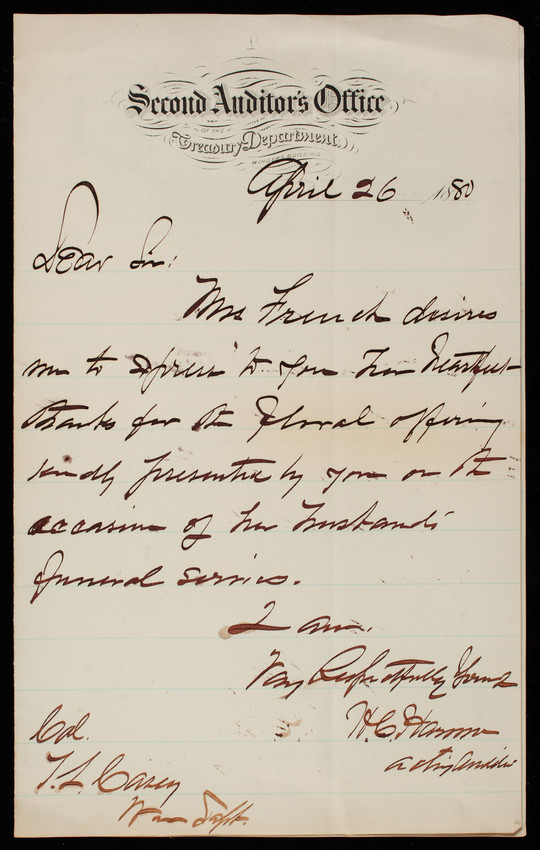 Second Auditor's Office
OF THE
Treasury Department,
WINDER'S BUILDING
April 26 1880
Dear Sir:
Mrs French desires
me to express to you her heartfelt
thanks for the floral offering
kindly presented by you on the
occasion of her husband's
funeral services.
I am.
Very Respectfully Yours
H.C. Harmon
acting Auditor
Col.
T.L. Casey
War Dept.